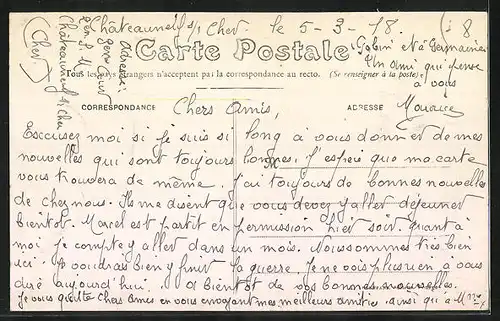 Châteauneuf s/ Cher. le 5-3-18.
Adresse:
Châteauneuf s/ Cher
(Cher)
Carte Postale
Tous les pays étrangers n'acceptent pas la correspondance au recto. (Se renseigner à la poste)
CORRESPONDANCE
ADRESSE
et à Germaine
Un ami qui pense
à vous
Chers Amis,
Escusez moi si je suis si long à vous donner de mes
nouvelles qui sont toujours bonnes. J'espeis que ma carte
vous trouvera de même. J'ai toujours de bonnes nouvelles
de chez nous. Ils me disent que vous devez y aller déjeuner
bientôt. Marcel est partit en permission hier soir. quant à
moi je compte y aller dans un mois. Nous sommes très bien
ici. Je voudrais bien y finir la guerre. Je ne vois plus rien à vous
dire aujourd'hui. A bientôt de vos bonnes nouvelles.
Je vous quitte chers Amis en vous envoyant mes meilleurs amitiés ainsi qu'à Mme